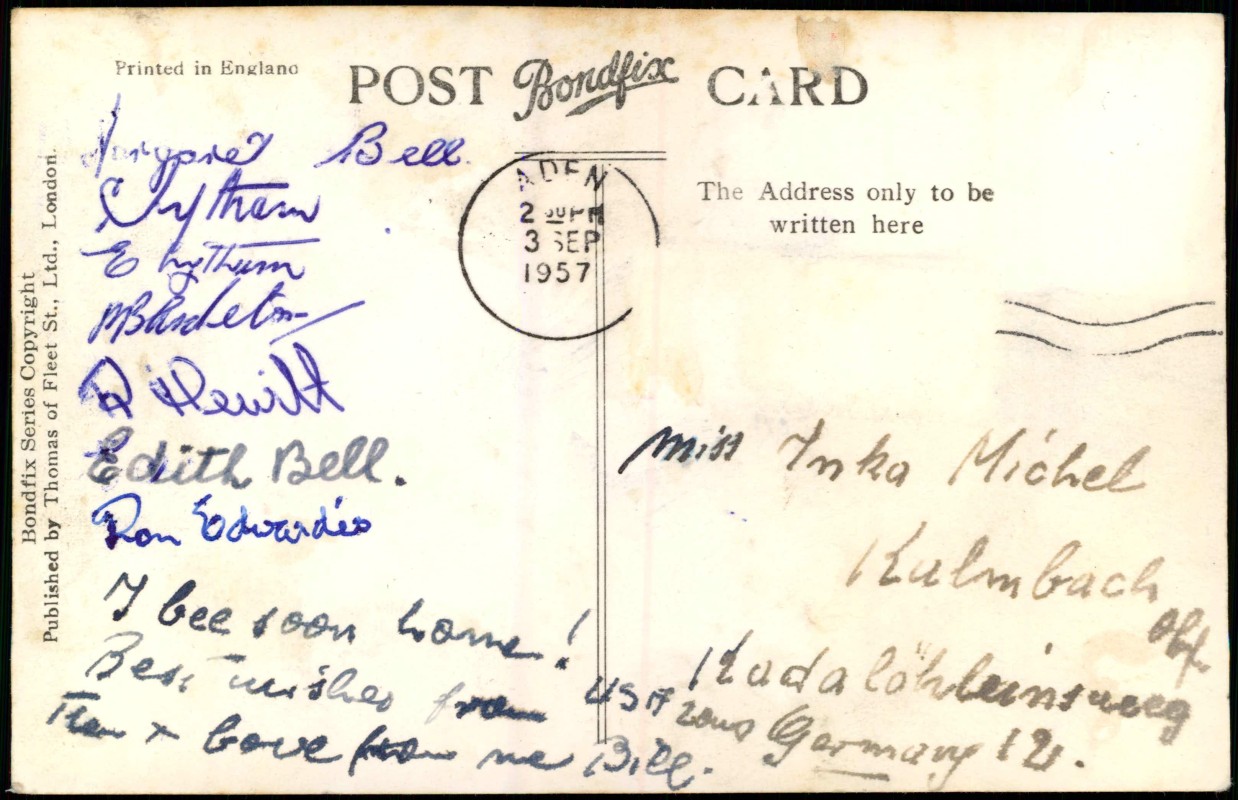 Printed in England
POST Bondfix CARD
Bondfix Series Copyright
Published by Thomas of Fleet St., Ltd., London.
Margaret Bell
E Lytham
R Hewitt
Edith Bell.
Ron Edwardes
I bee soon home!
Best wishes from
Them + love from me Bill.
ADEN
2 30 PM
3 SEP
1957
The Address only to be
written here
Miss Inka Michel
Kulmbach
Ofr.
USA zone Germany